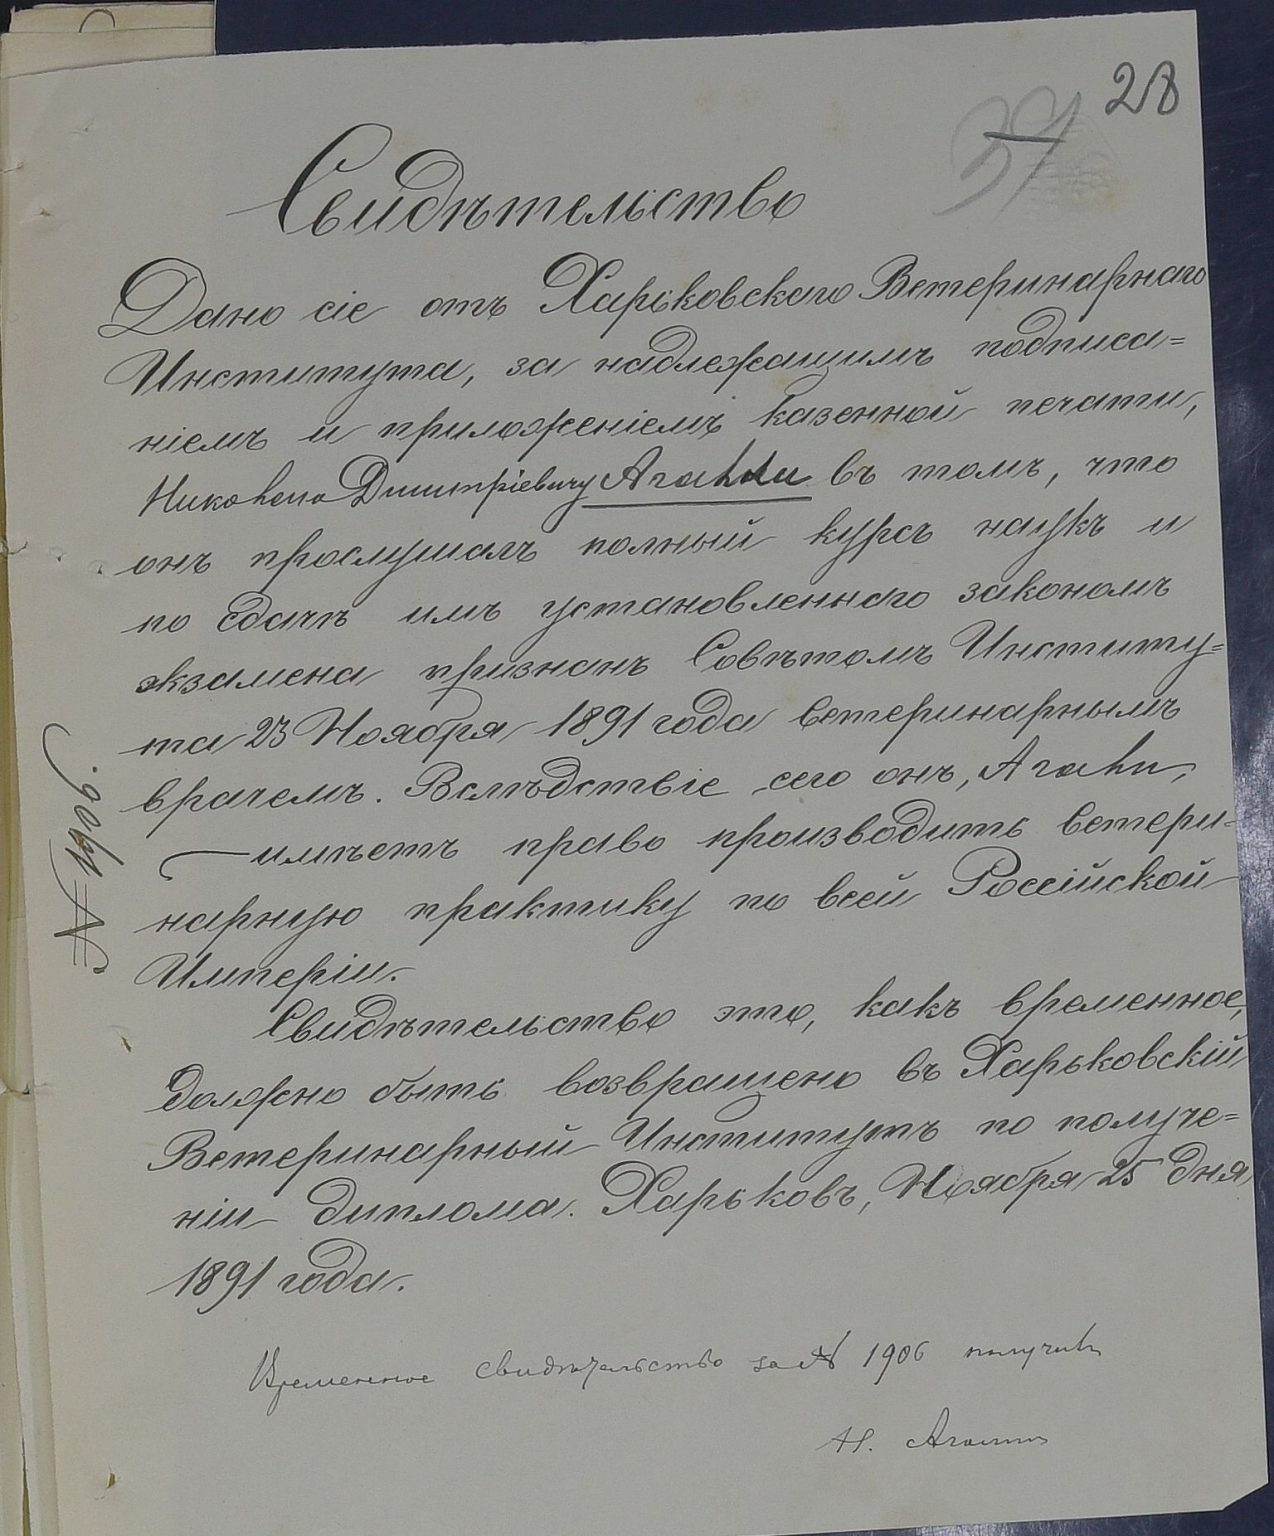 28
39
Свидѣтельство
Дано сіе отъ Харьковскаго Ветеринарнаго
Института, за надлежащимъ подписа=
ніемъ и приложеніемъ казенной печати,
Николаю Дмитріевичу въ томъ, что
онъ прослушалъ полный курсъ наукъ и
по сдачѣ имъ установленнаго закономъ
экзамена признанъ Совѣтомъ Институ=
та 23 Ноября 1891 года ветеринарнымъ
врачемъ. Вслѣдствіе сего онъ,
имѣетъ право производить ветери=
нарную практику по всей Россійской
Имперіи.
Свидѣтельство это, какъ временное,
должно быть возвращено въ Харьковскій
Ветеринарный Институтъ по получе=
ніи диплома. Харьковъ, Ноября 25 дня
1891 года.
№ 1906.
Временное свидѣтельство за № 1906 получилъ
Н.